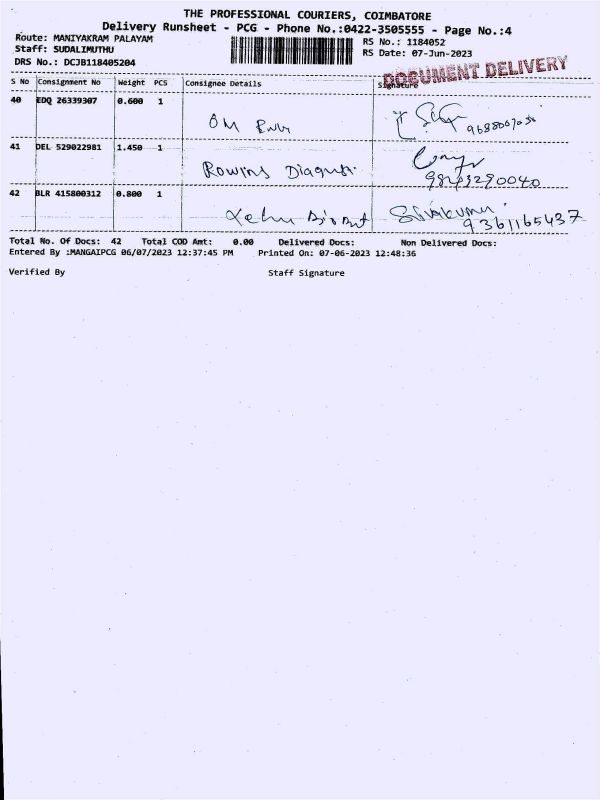 THE PROFESSIONAL COURIERS, COIMBATORE
Delivery Runsheet - PCG - Phone No.:0422-3505555 - Page No.:4
Route: MANIYAKRAM PALAYAM RS No.: 1184052
Staff: SUDALIMUTHU RS Date: 07-Jun-2023
DRS No.: DCJB118405204
DOCUMENT DELIVERY
S No Consignment No Weight PCS Consignee Details Signature
40 EDQ 26339307 0.600 1
OM
41 DEL 529022981 1.450 1
Rowins
42 BLR 415800312 0.800 1
Sivakumar
9361165437
Total No. Of Docs: 42 Total COD Amt: 0.00 Delivered Docs: Non Delivered Docs:
Entered By :MANGAIPCG 06/07/2023 12:37:45 PM Printed On: 07-06-2023 12:48:36
Verified By Staff Signature